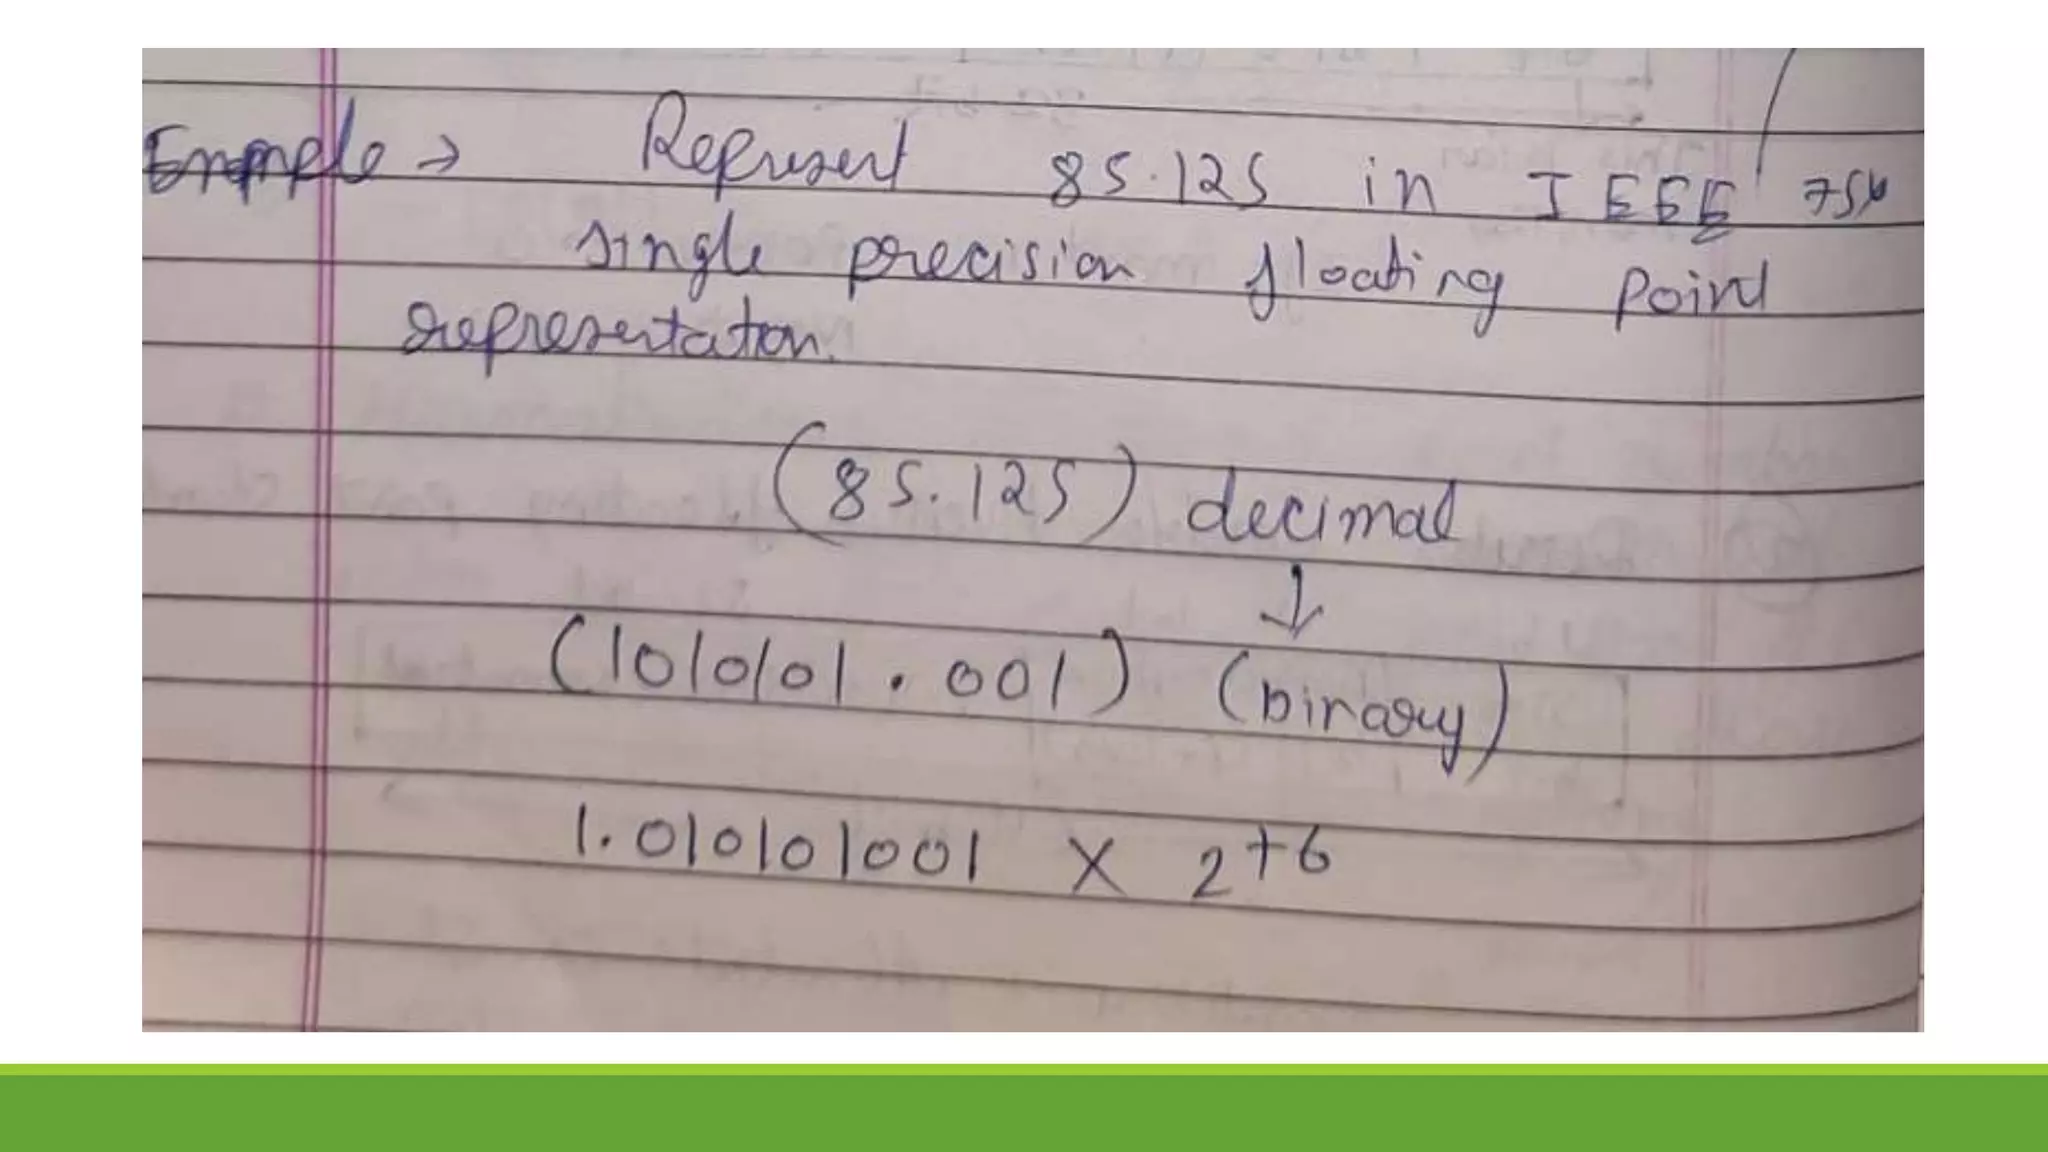 Example → Represent 85.125 in IEEE 754
single precision floating point
representation.
(85.125) decimal
↓
(1010101.001) (binary)
1.010101001 × 2+6